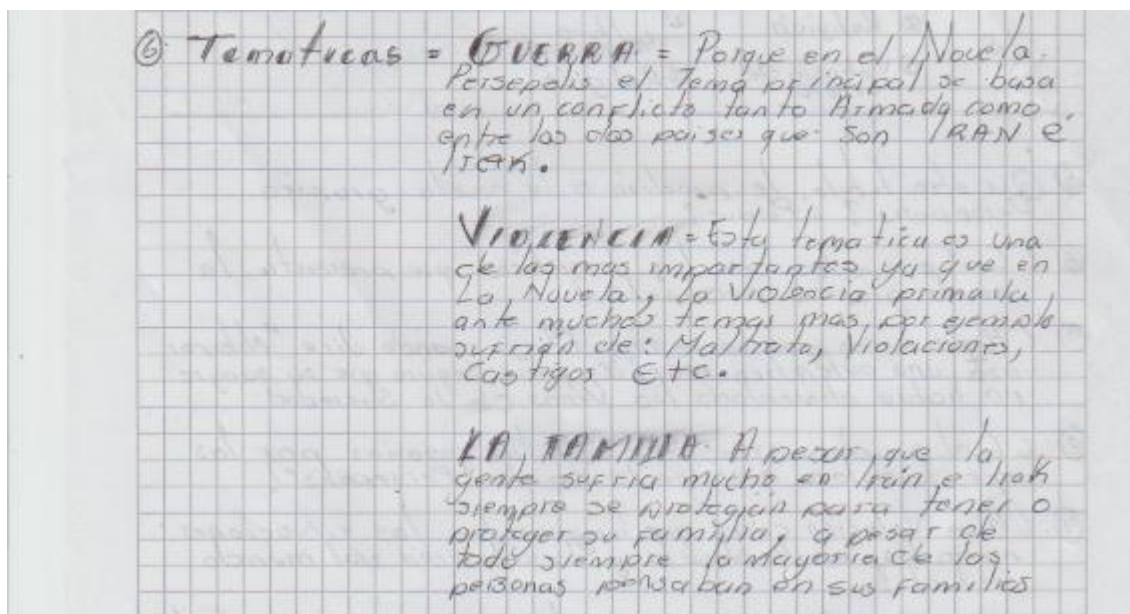 ⑥ Tematicas = GUERRA = Porque en el Novela
Persepolis el Tema principal se basa
en un conflicto tanto Armado como
entre los dos paises que son IRAN E
IRAK.
VIOLENCIA = Esta tematica es una
de las mas importantes ya que en
La Novela, La Violencia primaba
ante muchos temas mas, por ejemplo
sufrian de: Maltrato, Violaciones,
Castigos Etc.
LA FAMILIA. A pesar que la
gente sufria mucho en Irán e Irak
siempre se protegian para tener o
proteger su familia, a pesar de
todo siempre la mayoria de las
personas pensaban en sus familias